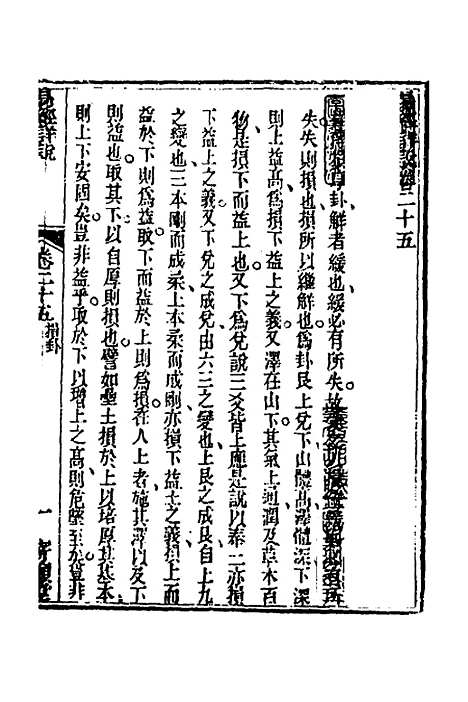 易經詳說卷二十五
卦解者緩也緩必有所失故
失失則損也損所以繼解也為卦艮上兌下山體高澤體深下深
則上益高為損下益上之義又澤在山下其氣上通潤及草木百
物是損下而益上也又下為兌說三爻皆上應是說以奉上亦損
下益上之義又下兌之成兌由六三之變也上艮之成艮自上九
之變也三本剛而成柔上本柔而成剛亦損下益上之義損上而
益於下則為益取下而益於上則為損在人上者施其澤以及下
則益也取其下以自厚則損也譬如壘土損於上以培厚其基本
則上下安固矣豈非益乎取於下以增上之高則危墜至矣豈非
易經詳說
卷二十五 損卦
一